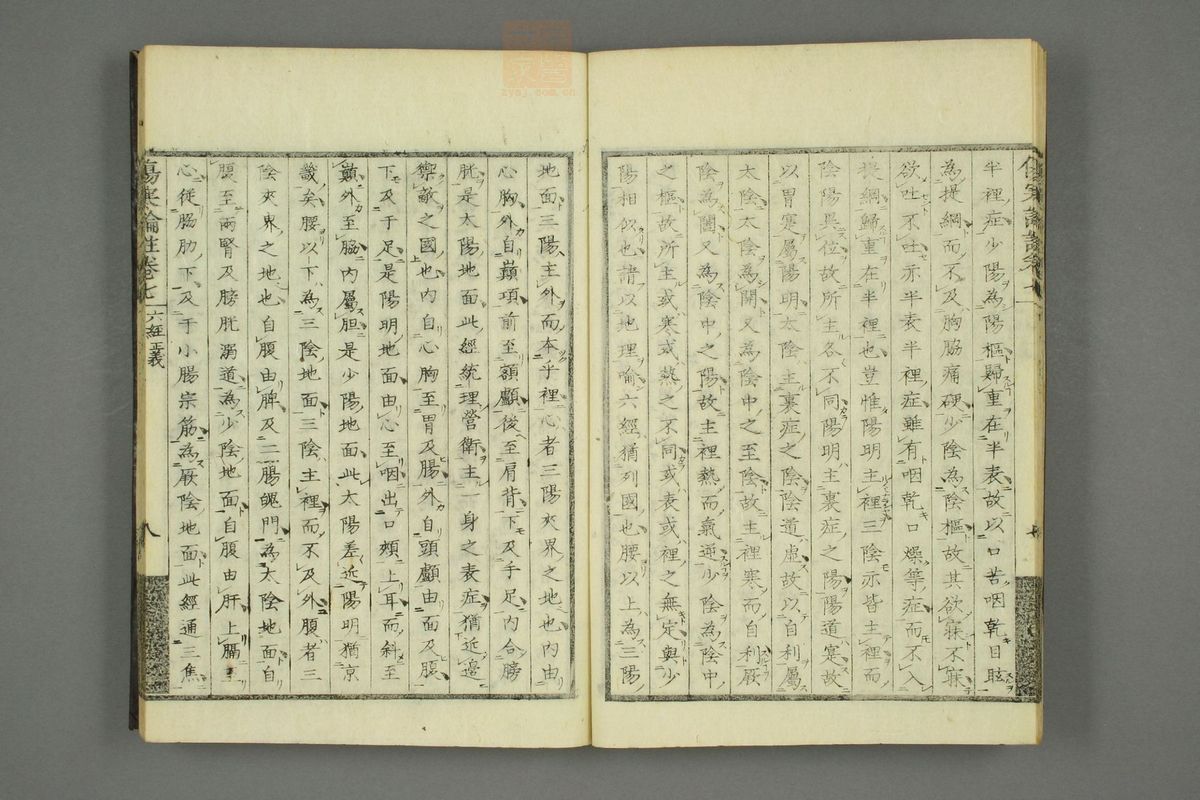 半裡症少陽為陽樞歸重在半表故以口苦咽乾目眩
為提綱而不及胸脇痛硬少陰為陰樞故其欲寐不寐
欲吐不吐亦半表半裡症雖有咽乾口燥等症而不入
提綱歸重在半裡也豈惟陽明主裡三陰亦皆主裡而
陰陽異位故所主各不同陽明主裏症之陽陽道寔故
以胃寔屬陽明太陰主裏症之陰陰道虛故以自利屬
太陰太陰為開又為陰中之至陰故主裡寒而自利厥
陰為闔又為陰中之陽故主裡熱而氣逆少陰為陰中
之樞故所主或寒或熱之不同或表或裡之無定與少
陽相似也請以地理喻六經猶列國也腰以上為三陽
地面三陽主外而本乎裡心者三陽夾界之地也內由
心胸外自巔項前至額顱後至肩背下及乎足內合膀
胱是太陽地面此經統理營衛主一身之表症猶近邊
禦敵之國也內自心胸至胃及腸外自頭顱由面及腹
下及于足是陽明地面由心至咽出口頰上耳而斜至
巔外至脇內屬胆是少陽地面此太陽差近陽明猶京
畿矣腰以下為三陰地面三陰主裡而不及外腹者三
陰夾界之地也自腹由脾及二腸魄門為太陰地面自
腹至兩腎及膀胱溺道為少陰地面自腹由肝上膈至
心從脇肋下及于小腸宗筋為厥陰地面此經通三焦
傷寒論註卷七
六經正義
八